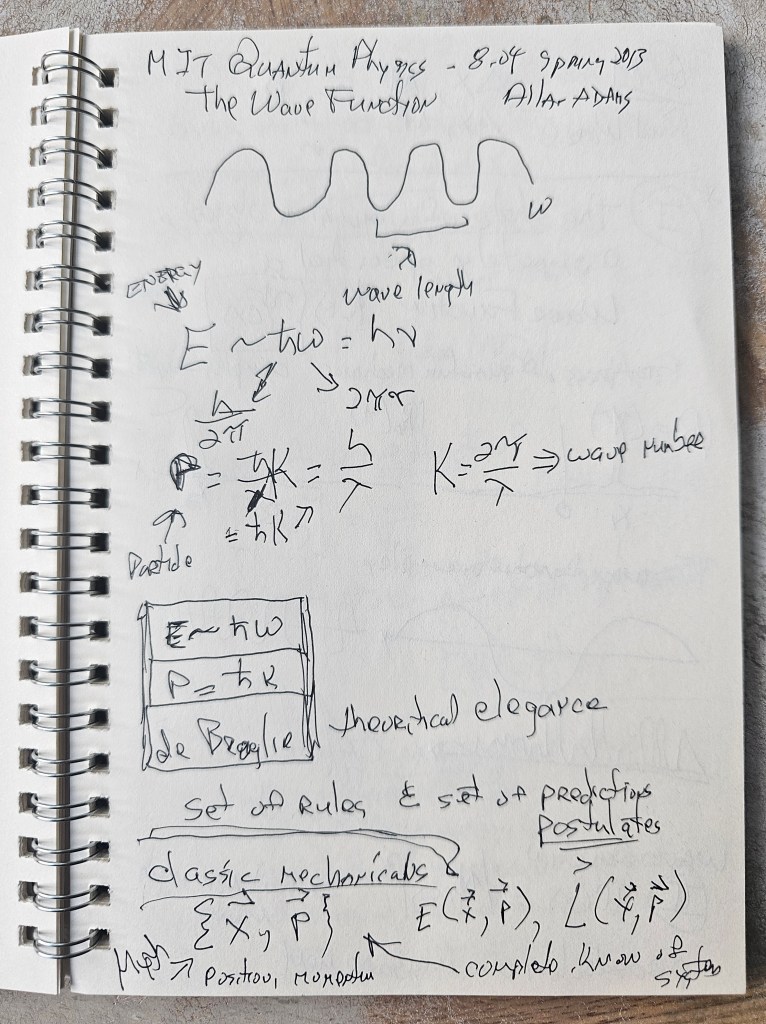 MIT Quantum Physics - 8.04 Spring 2013
The Wave Function Allan ADAMS
ω
λ
wave length
ENERGY
E ~ ħω = hν
h/2π 2πν
P = ħK = h/λ K = 2π/λ ⇒ wave number
= ħK
Particle
E ~ ħω
P = ħK
de Broglie theoritical elegance
set of rules & set of predictions
postulates
classic mechanicals
{x⃗, p⃗} E(x⃗, p⃗), L(x⃗, p⃗)
position, momentum complete know of system